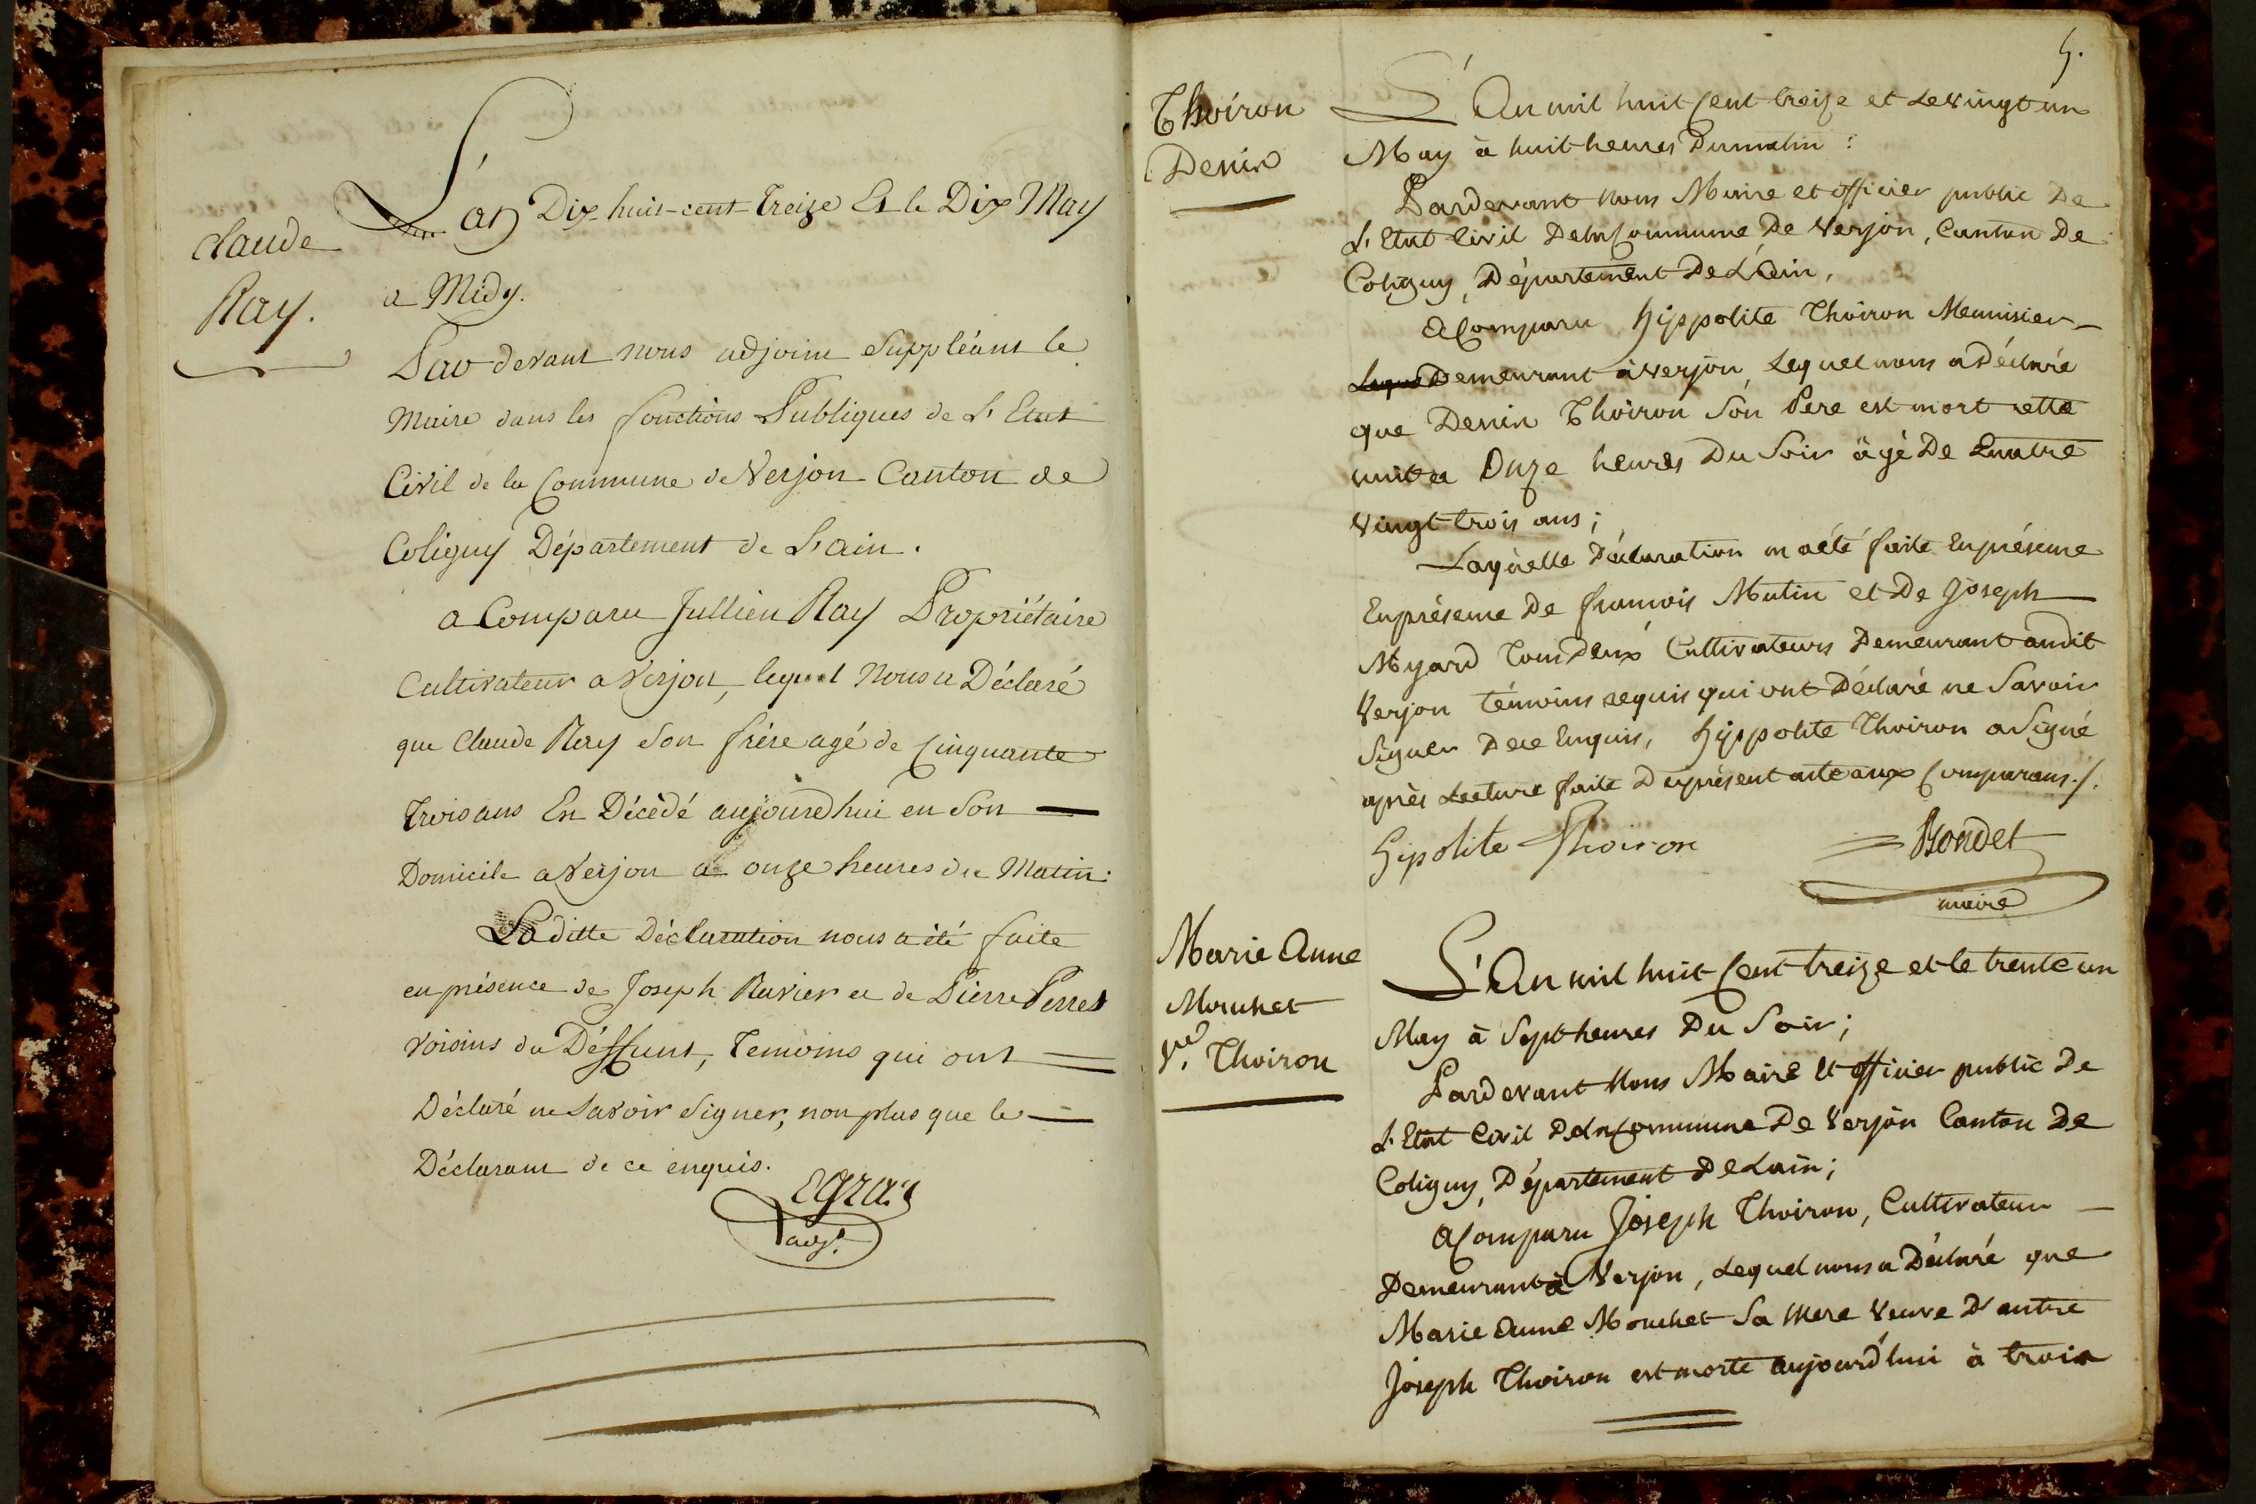 Claude
Ray.
L'an Dix-huit-cent Treize Et le Dix May
a Midy.
Par devant nous adjoint Suppléant le
Maire dans les fonctions Publiques de L'Etat
Civil de la Commune de Verjon Canton de
Coligny Département de L'ain.
a Comparu Jullien Ray Propriétaire
Cultivateur a Verjon, lequel nous a Déclaré
que Claude Ray Son frère agé de Cinquante
Trois ans En Décédé aujourdhui en Son
Domicile a Verjon a onze heures du Matin.
Laditte Déclaration nous a été faite
en présence de Joseph Ravier et de Pierre Perret
voisins du Déffunt, Temoins qui ont
Déclaré ne Savoir Signer, non plus que le
Déclarant de ce enquis.
adj.t
5.
Thoiron
Denin
L'An mil huit Cent treize et Le vingt un
May à huit heures Du matin :
Pardevant Nous Maire et officier public De
L'Etat Civil De la Commune De Verjon, Canton De
Coligny, Département De L'Ain,
A Comparu hyppolite Thoiron Meunisier
Leque Demeurant à Verjon, Lequel nous a Déclaré
que Denin Thoiron Son Pere est mort cette
nuit a Onze heures Du Soir âgé De Quatre
Vingt trois ans ;
Laquelle Déclaration m'a été faite En présence
En présence De françois Mutin et De Joseph
Myard Tous Deux Cultivateurs Demeurant audit
Verjon témoins requis qui ont Déclaré ne Savoir
Signer De ce Enquis, hyppolite Thoiron a Signé
après Lecture faite Du présent acte aux Comparans./.
hipolite Thoiron Bondet
maire
Marie Anne
Mouchet
V.e Thoiron
L'An mil huit Cent treize et le trente un
May à Sept heures Du Soir ;
Pardevant Nous Maire Et officier public De
L'Etat Civil De la Commune De Verjon Canton De
Coligny, Département De Lain ;
A Comparu Joseph Thoiron, Cultivateur
Demeurant à Verjon, Lequel nous a Déclaré que
Marie Anne Mouchet Sa Mere Veuve D'autre
Joseph Thoiron est morte aujourd'hui à trois